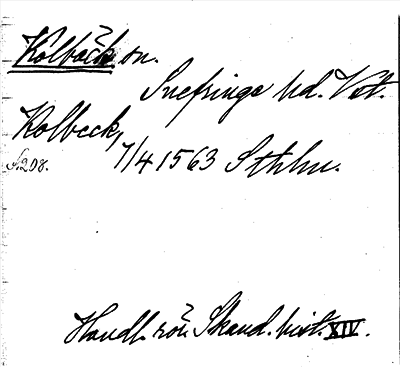 Kolbäck sn.
Snefringe hd. Vstm.
Kolbeck, 7/4 1563 Sthlm.
S. 208.
Handl. rör. Skand. hist. XIV.